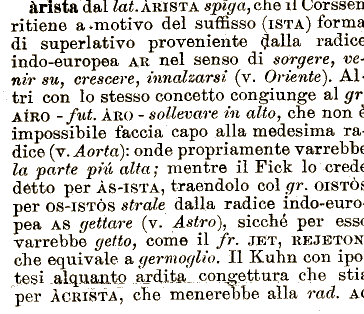 àrista dal lat. ÀRISTA spiga, che il Corssen
ritiene a motivo del suffisso (ISTA) forma
di superlativo proveniente dalla radice
indo-europea AR nel senso di sorgere, ve-
nir su, crescere, innalzarsi (v. Oriente). Al-
tri con lo stesso concetto congiunge al gr.
AÍRO - fut. ÀRO - sollevare in alto, che non è
impossibile faccia capo alla medesima ra-
dice (v. Aorta): onde propriamente varrebbe
la parte piú alta; mentre il Fick lo crede
detto per ÀS-ISTA, traendolo col gr. OISTÒS
per OS-ISTÒS strale dalla radice indo-euro-
pea AS gettare (v. Astro), sicché per esso
varrebbe getto, come il fr. JET, REJETON
che equivale a germoglio. Il Kuhn con ipo-
tesi alquanto ardita congettura che stia
per ÀCRISTA, che menerebbe alla rad. AC